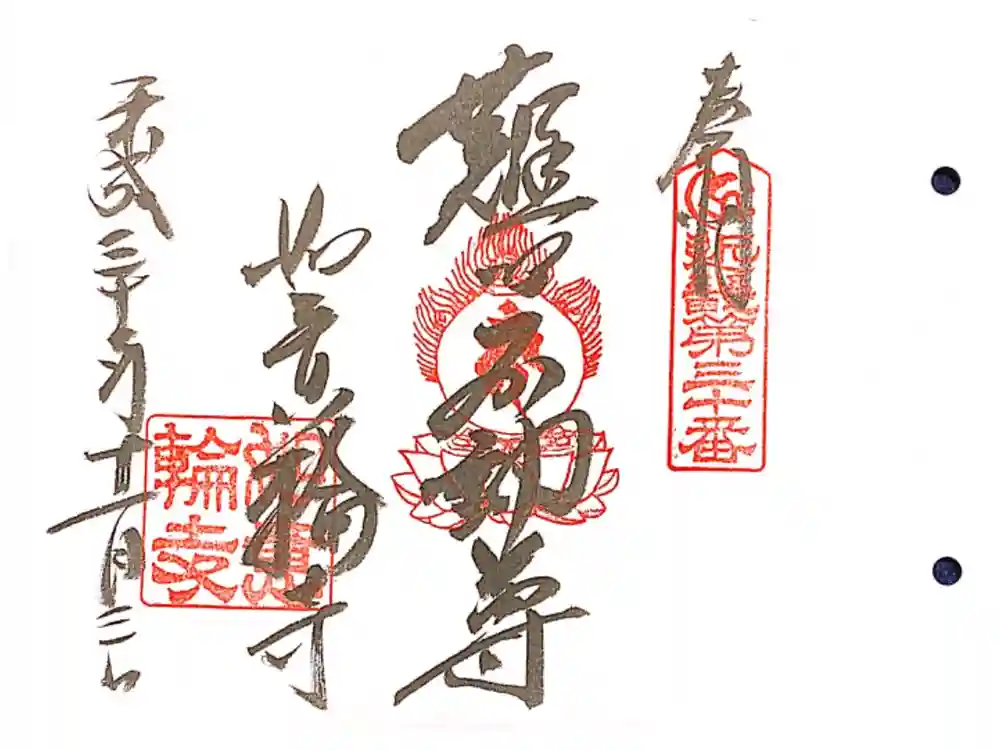 奉拝
近畿第三十番
難切不動尊
如意輪寺
如意
輪寺
平成三十年十一月三日